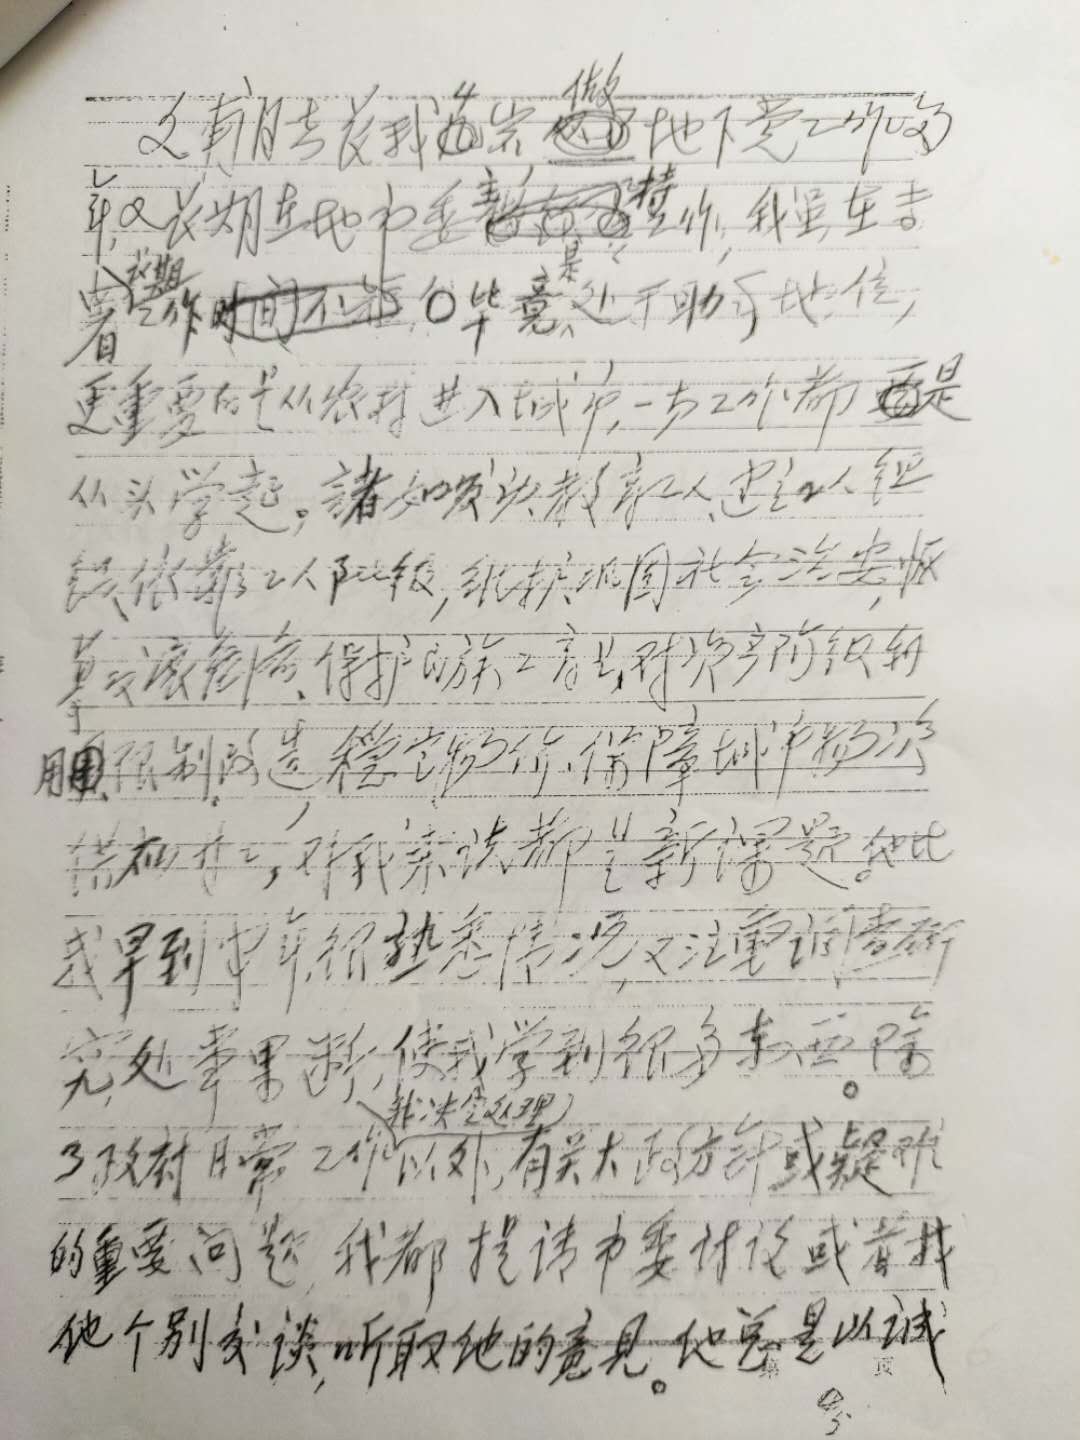 地下党工作多
年,又长期在地市委主持工作,我虽在专
署工作,但毕竟是处于助手地位,
更重要的是从农村进入城市,一切工作都是
从头学起。诸如发动教育工人,建立工人组
织,依靠工人阶级,维护巩固社会治安,恢
保护民族工商业,对资产阶级利
用限制改造,稳定物价,保障城市物资
供应等等,对我来说都是新课题。他比
我早到 年,很熟悉情况,又注重调查研
究,处事果断,使我学到很多东西。除
了政府日常工作我决定处理以外,有关大政方针或疑难
的重要问题,我都提请市委讨论或者找
他个别交谈,听取他的意见。他总是以诚
第 页